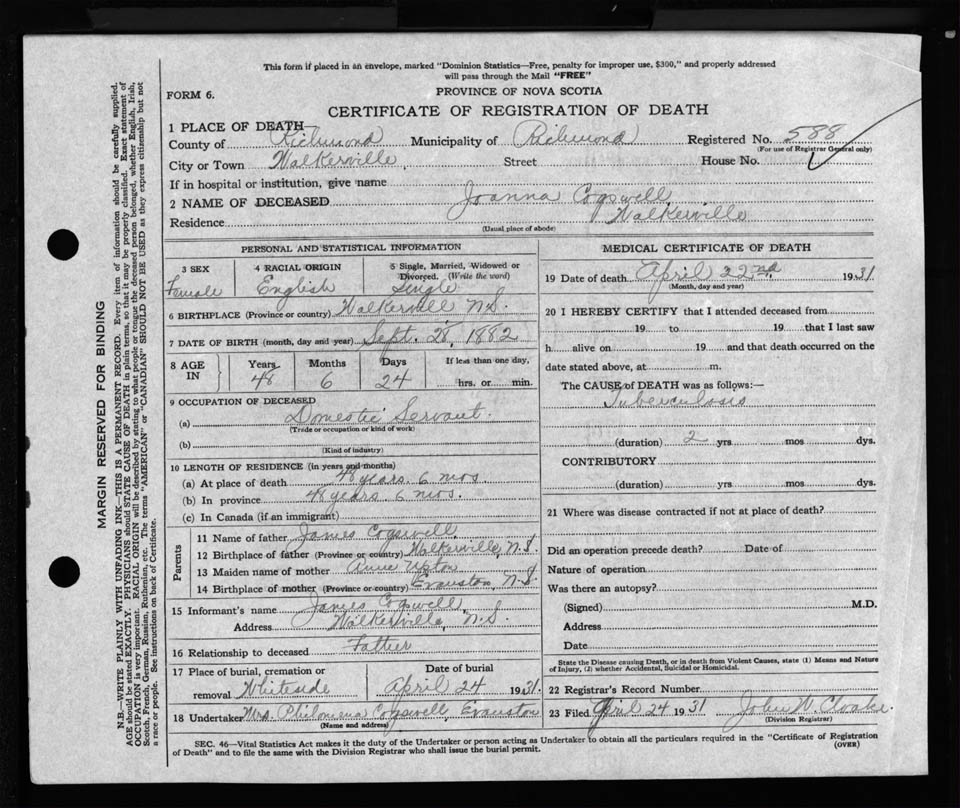 This form if placed in an envelope, marked "Dominion Statistics—Free, penalty for improper use, $300," and properly addressed
will pass through the Mail "FREE"
FORM 6.
PROVINCE OF NOVA SCOTIA
CERTIFICATE OF REGISTRATION OF DEATH
1 PLACE OF DEATH
County of Richmond Municipality of Richmond Registered No. 588
(For use of Registrar General only)
City or Town Walkerville, Street House No.
If in hospital or institution, give name
2 NAME OF DECEASED Joanna Cogswell,
Residence Walkerville
(Usual place of abode)
PERSONAL AND STATISTICAL INFORMATION
3 SEX 4 RACIAL ORIGIN 5 Single, Married, Widowed or
Divorced. (Write the word)
Female English Single
6 BIRTHPLACE (Province or country) Walkerville N.S.
7 DATE OF BIRTH (month, day and year) Sept. 28, 1882
8 AGE IN Years Months Days If less than one day,
48 6 24 hrs. or min.
9 OCCUPATION OF DECEASED
(a) Domestic Servant.
(Trade or occupation or kind of work)
(b)
(Kind of industry)
10 LENGTH OF RESIDENCE (in years and months)
(a) At place of death 48 years. 6 mos.
(b) In province 48 years. 6 mos.
(c) In Canada (if an immigrant)
Parents
11 Name of father James Cogswell,
12 Birthplace of father (Province or country) Walkerville, N.S.
13 Maiden name of mother Anne Upton
14 Birthplace of mother (Province or country) Evanston, N.S.
15 Informant's name James Cogswell,
Address Walkerville, N.S.
16 Relationship to deceased Father
17 Place of burial, cremation or Date of burial
removal Whiteside April 24 1931.
18 Undertaker Mrs. Philomena Cogswell, Evanston
(Name and address)
MEDICAL CERTIFICATE OF DEATH
19 Date of death April 22nd, 1931
(Month, day and year)
20 I HEREBY CERTIFY that I attended deceased from
19 to 19 that I last saw
h alive on 19 and that death occurred on the
date stated above, at m.
The CAUSE OF DEATH was as follows:—
Tuberculosis
(duration) 2 yrs mos dys.
CONTRIBUTORY
(duration) yrs mos dys.
21 Where was disease contracted if not at place of death?
Did an operation precede death? Date of
Nature of operation
Was there an autopsy?
(Signed) M.D.
Address
Date
State the Disease causing Death, or in death from Violent Causes, state (1) Means and Nature
of Injury, (2) whether Accidental, Suicidal or Homicidal.
22 Registrar's Record Number
23 Filed April 24 1931 John W. Cloake.
(Division Registrar)
SEC. 46—Vital Statistics Act makes it the duty of the Undertaker or person acting as Undertaker to obtain all the particulars required in the "Certificate of Registration
of Death" and to file the same with the Division Registrar who shall issue the burial permit.
(OVER)
MARGIN RESERVED FOR BINDING
N.B.—WRITE PLAINLY WITH UNFADING INK—THIS IS A PERMANENT RECORD. Every item of information should be carefully supplied.
AGE should be stated EXACTLY. PHYSICIANS should STATE CAUSE OF DEATH in plain terms, so that it may be properly classified. Exact statement of
OCCUPATION is very important. RACIAL ORIGIN will be described by stating to what people or tongue the deceased person belonged, whether English, Irish,
Scotch, French, German, Russian, Ruthenian, etc. The terms "AMERICAN" or "CANADIAN" SHOULD NOT BE USED as they express citizenship but not
a race or people. See instructions on back of Certificate.